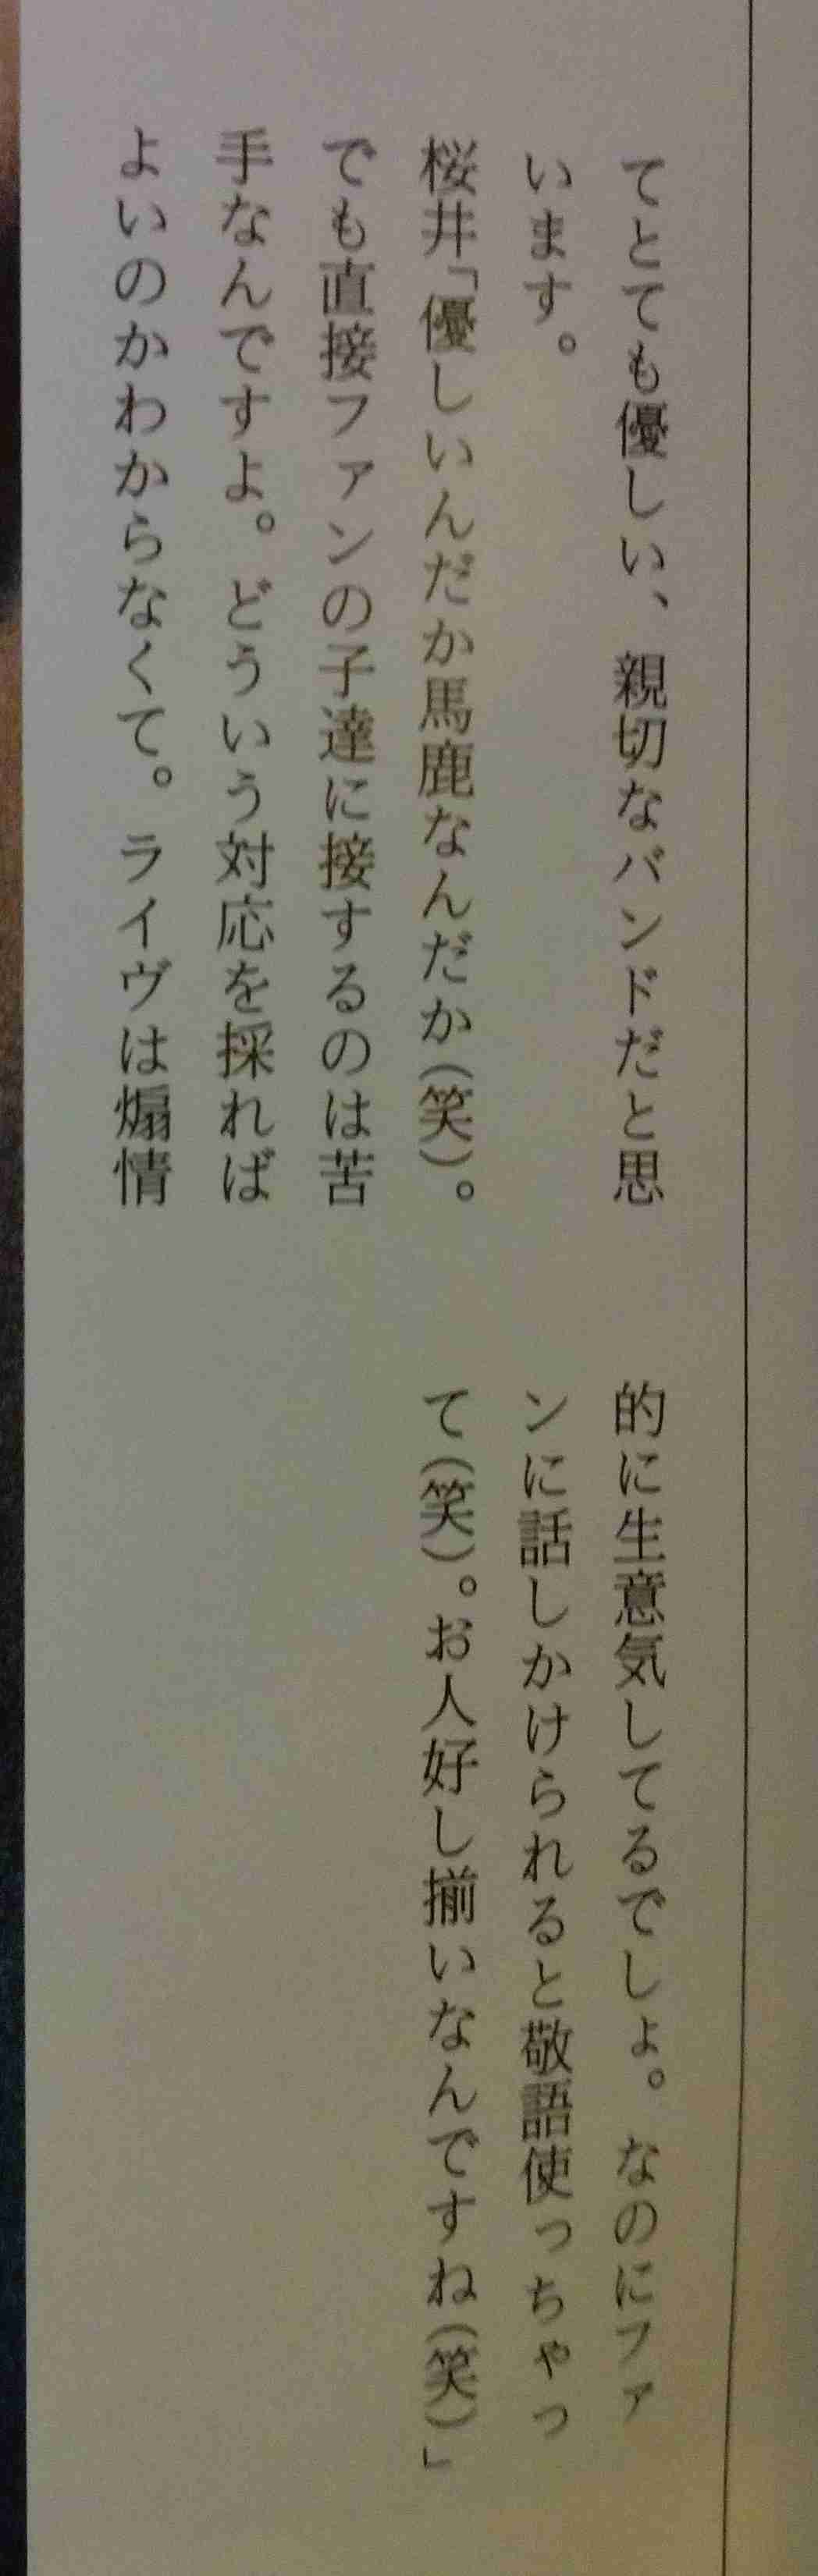 てとても優しい、親切なバンドだと思
います。
桜井「優しいんだか馬鹿なんだか(笑)。
でも直接ファンの子達に接するのは苦
手なんですよ。どういう対応を採れば
よいのかわからなくて。ライヴは煽情
的に生意気してるでしょ。なのにファ
ンに話しかけられると敬語使っちゃっ
て(笑)。お人好し揃いなんですね(笑)」